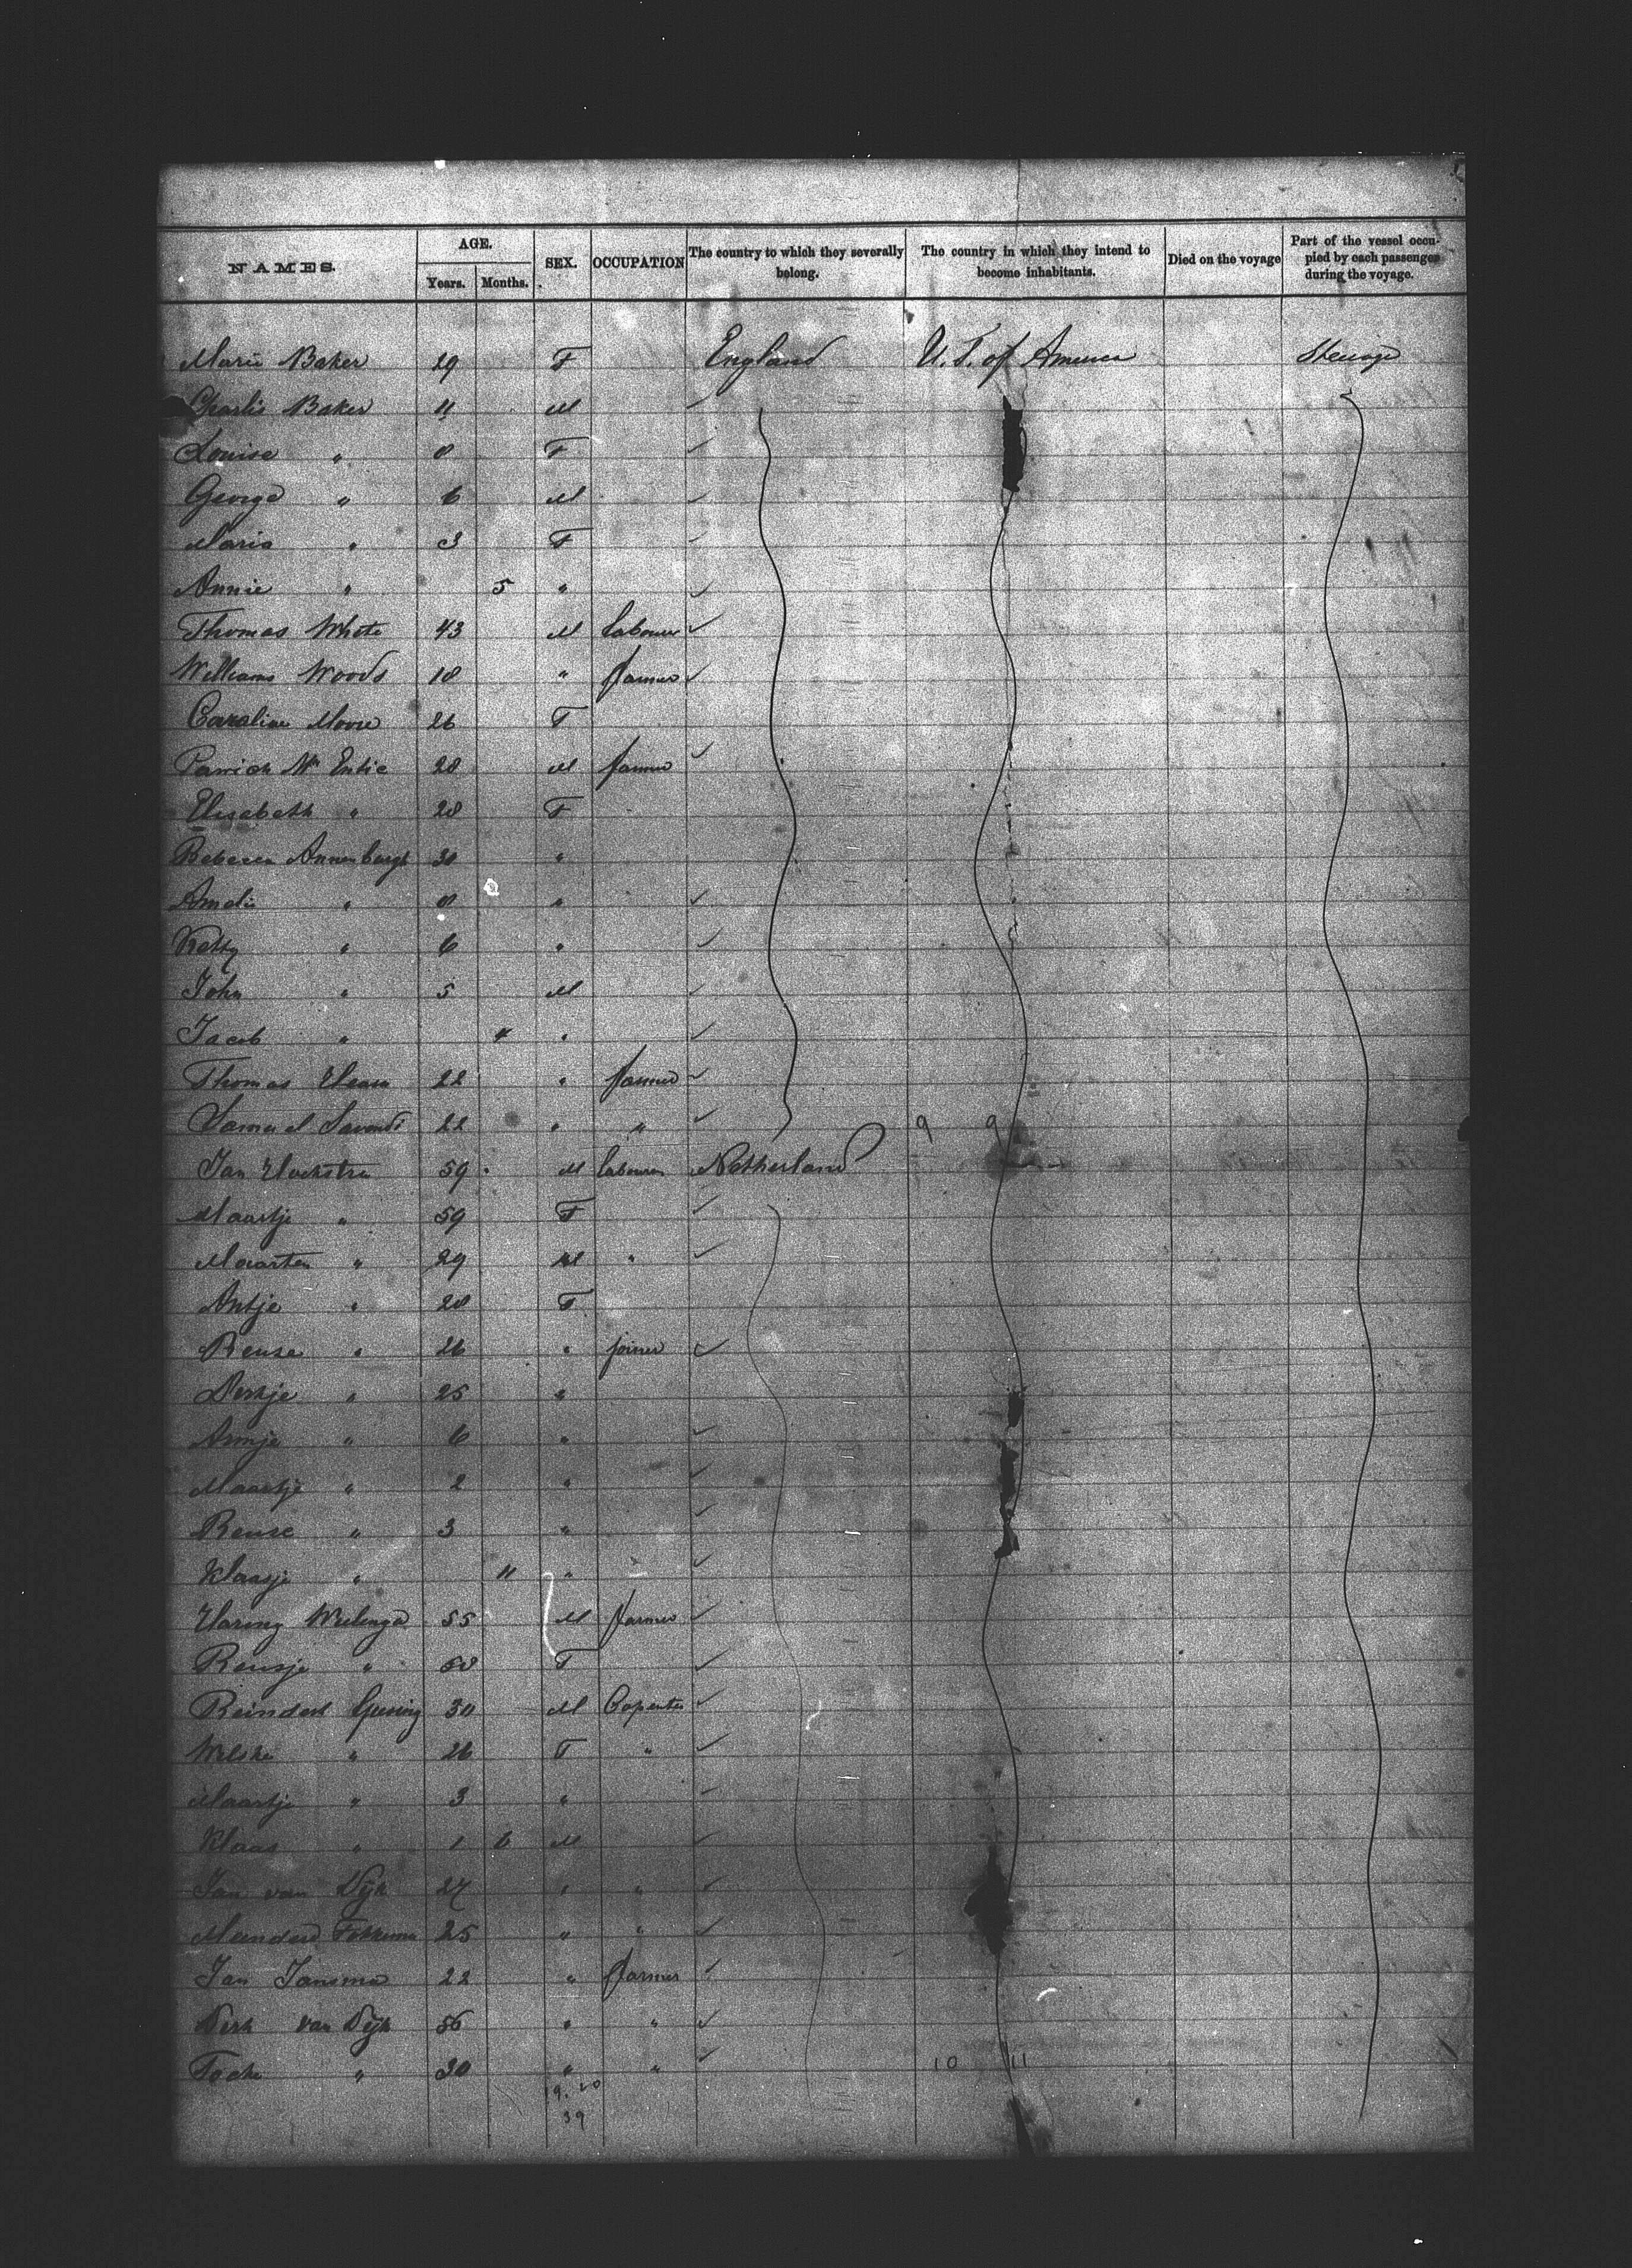 NAMES. AGE. SEX. OCCUPATION The country to which they severally belong. The country in which they intend to become inhabitants. Died on the voyage Part of the vessel occupied by each passenger during the voyage.
Years. Months.
Marie Baker 29 F England U. S. of America Steerage
Charlie Baker 11 M
Louise " 8 F
George " 6 M
Maria " 3 F
Annie " 5 "
Thomas White 43 M Labourer
Williams Woods 18 " farmer
Caroline Moore 26 F
Patrick Mc Entie 28 M farmer
Elisabeth " 28 F
Rebecca Annenburgh 30 "
Amelie " 8 "
Ketty " 6 "
John " 5 M
Jacob " 4 "
Thomas 22 " farmer
Samuel 22 " " 9 9
Jan Hoekstra 59 M Labourer Netherland
Maartje " 59 F
Maarten " 29 M "
Antje " 28 F
Rense " 26 " joiner
Derkje " 25 "
Armje " 6 "
Maartje " 2 "
Rense " 3 "
Klaasje " 11 "
Haring Wielenga 55 M farmer
Rensje " 50 F
Reindert 30 M Capenter
Welske " 26 F "
Maartje " 3 "
Klaas " 1 6 M
Jan van Dijk 27 " "
Meinderd Fokkema 25 " "
Jan Jansma 22 " farmer
Derk van Dijk 56 " "
" 30 " " 10 11
19. 20
39